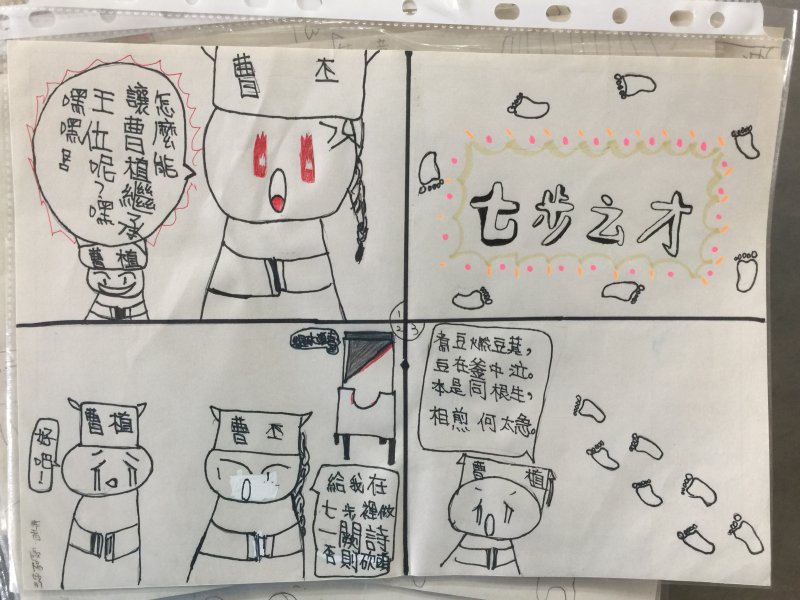 七步之才
曹丕
怎麼能
讓曹植繼承
王仕呢?嘿
嘿嘿
曹植
1
2 3
曹植
好吧!
曹丕
給我在
七步裡做
一闕詩
否則砍頭
煮豆燃豆萁,
豆在釜中泣。
本是同根生,
相煎何太急。
曹植